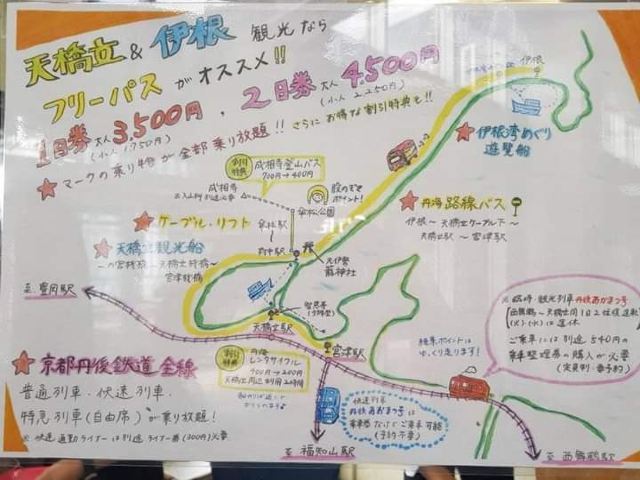 天橋立&伊根 観光なら
フリーパスがオススメ!!
1日券 大人 3,500円・2日券 大人 4,500円
(小人 1,750円)
(小人 2,250円)
★マークの乗り物が全部乗り放題!! さらにお得な割引特典も!!
伊根
★伊根湾めぐり
遊覧船
割引
特典
成相寺登山バス
700円→400円
成相寺
股のぞき
ポイント!
傘松公園
★ケーブル・リフト
傘松駅
府中駅
★丹海 路線バス
伊根〜天橋立ケーブル下〜
天橋立駅〜宮津駅
★天橋立観光船
宮津桟橋
元伊勢
籠神社
智恩寺
天橋立駅
宮津駅
至 豊岡駅
★京都丹後鉄道 全線
普通列車・快速列車・
特急列車(自由席)が乗り放題!
※快速通勤ライナーは別途ライナー券(300円)必要
割引
特典
レンタサイクル
400円→200円
天橋立周辺 利用2時間
絶景ポイントは
ゆっくり走ります!
快速列車
丹後あおまつ号は
乗車整理券なしでご乗車可能
(予約不要)
※臨時・観光列車 丹後あかまつ号
西舞鶴〜天橋立間1日2往復運転
(火)(水)は運休
ご乗車には別途540円の
乗車整理券の購入が必要
(定員制・要予約)
至 福知山駅
至 西舞鶴駅